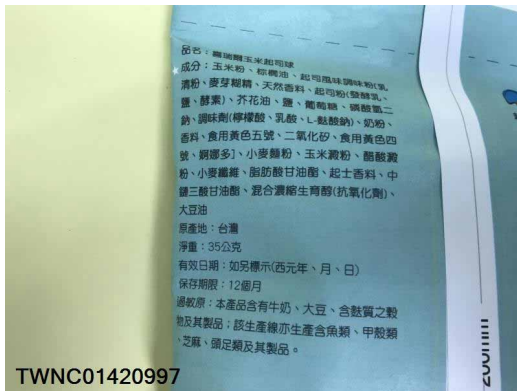 品名：喜瑞爾玉米起司球
成分：玉米粉、棕櫚油、起司風味調味粉(乳
清粉、麥芽糊精、天然香料、起司粉(發酵乳、
鹽、酵素)、芥花油、鹽、葡萄糖、磷酸氫二
鈉、調味劑(檸檬酸、乳酸、L-麩酸鈉)、奶粉、
香料、食用黃色五號、二氧化矽、食用黃色四
號、婀娜多]、小麥麵粉、玉米澱粉、醋酸澱
粉、小麥纖維、脂肪酸甘油酯、起士香料、中
鏈三酸甘油酯、混合濃縮生育醇(抗氧化劑)、
大豆油
原產地：台灣
淨重：35公克
有效日期：如另標示(西元年、月、日)
保存期限：12個月
過敏原：本產品含有牛奶、大豆、含麩質之穀
物及其製品；該生產線亦生產含魚類、甲殼類
、芝麻、頭足類及其製品。
200mm
TWNC01420997